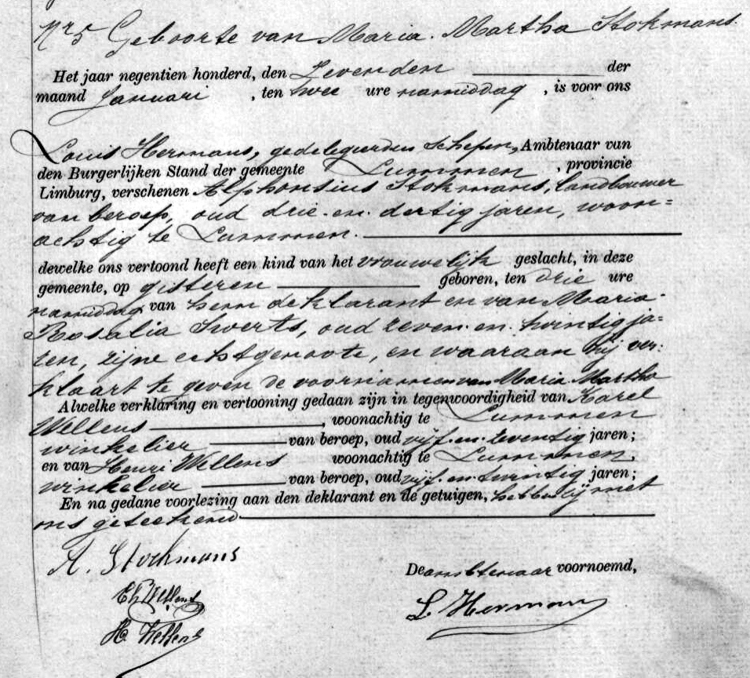 Nr 5 Geboorte van Maria Martha Stokmans
Het jaar negentien honderd, den Zevenden der
maand Januari, ten twee ure namiddag, is voor ons
Louis Hermans, gedelegeerden Schepen, Ambtenaar van
den Burgerlijken Stand der gemeente Lummen, provincie
Limburg, verschenen Alphonsius Stokmans, landbouwer
van beroep, oud drie en dertig jaren, woon=
achtig te Lummen.
dewelke ons vertoond heeft een kind van het vrouwelijk geslacht, in deze
gemeente, op gisteren geboren, ten drie ure
namiddag van hem deklarant en van Maria
Rosalia Swerts, oud zeven en twintig ja=
ren, zijne echtgenoote, en waaraan hij ver=
klaart te geven de voornamen van Maria Martha
Alwelke verklaring en vertooning gedaan zijn in tegenwoordigheid van Karel
Wellens, woonachtig te Lummen
winkelier van beroep, oud vijf en zeventig jaren;
en van Henri Wellens woonachtig te Lummen,
winkelier van beroep, oud vijf en twintig jaren;
En na gedane voorlezing aan den deklarant en de getuigen, hebben zij met
ons geteekend
A. Stockmans
De ambtenaar voornoemd,
Wellens
L. Hermans
H. Wellens